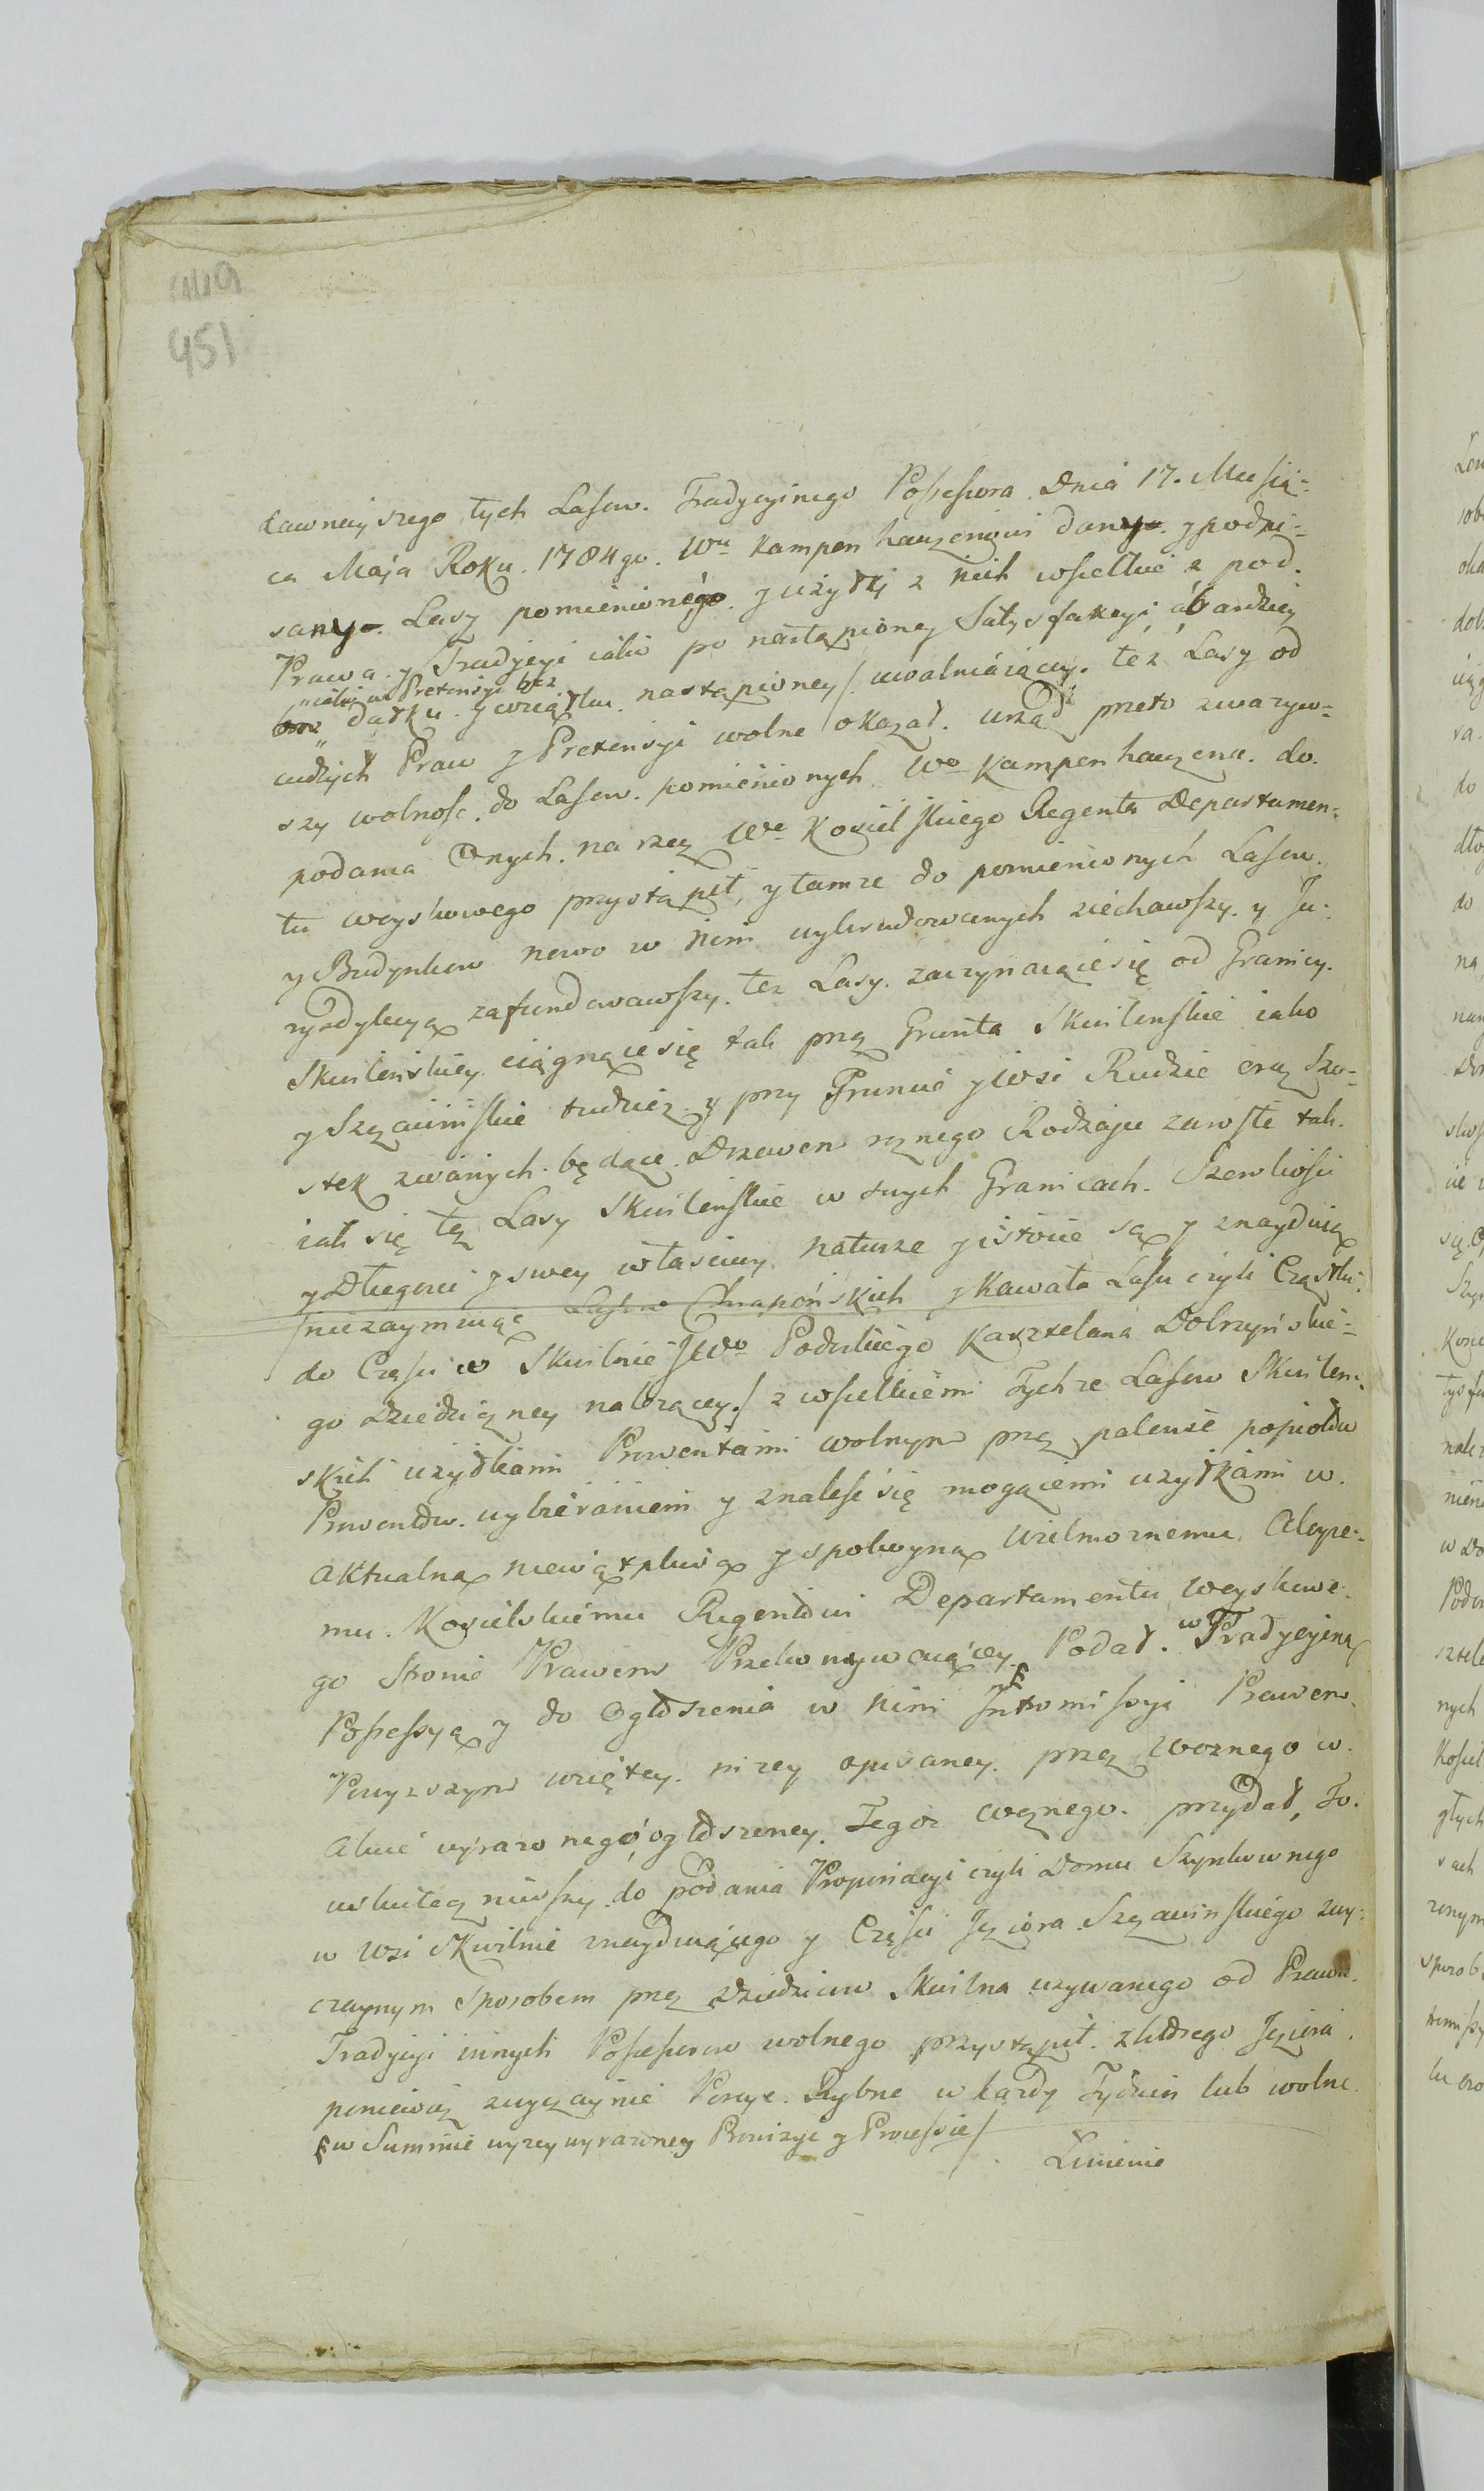 449
451
dawneyszego tych Lasow. Tradycyinego Possessora Dnia 17. Miesią-
ca Maja Roku 1784go. Wu Kampenhauzenowi dany y podpi-
sany. Lasy pomienionego y użytki z nich wszelkie z pod.
Prawa y Tradycyi iako po nastąpioney Satysfakcyi, a bardziey
całey w Pretensyi bez
datku y wziątku nastąpioney/ uwalniaiący. też Lasy od
cudzych Praw y Pretensyi wolne okazał. urząd przeto zwazyw-
szy wolność do Lasow pomienionych Wo Kampenhauzena. do
podania Onych na rzecz Wo Kosielskiego Regenta Departamen-
tu woyskowego przystąpił, y tamże do pomienionych Lasow
y Budynkow nowo w nim wybudowanych ziechawszy. y Ju-
ryzdykcyą zafundowawszy. też Lasy. zaczynaiące się od Granicy.
Skuileńskiey ciągnące się tak przy Grunta Skwilenskie iako
y Szczawinskie tudzież y przy Gruncie y Wsi Rudzie oraz
stek zwanych będące Drzewem roznego Rodzaju zarosłe tak.
iak się te Lasy Skwilenskie w swych Granicach. Szerokości
y Długości y swey własciwey naturze y istocie są y znayduią
/niezaymuiąc Lasow Chrapońskich y Kawała Lasu czyli Cząstki
do Części w Skwilnie JWo Podoskiego Kasztelana Dobrzyńskie-
go Dziedziczney należącey./ z wszelkiemi Tychże Lasow Skwilen-
skich użytkami Prowentami wolnym przez palenie popiołow
Prowentow wybieraniem y znaleść się mogącemi użytkami w
Aktualną niewątpliwą y spokoyną Wielmoznemu Aloyze-
mu Kosielskiemu Regentowi Departamentu Woyskowe-
go Stronie Prawem Przekonywaiącey Podał. w Tradycyiną
Possessyą y do Ogłoszenia w nim Intromissyi Prawem
Powyższym wziętey. niżey opisaney. przez Woznego w.
Akcie wyrażonego, ogłoszoney. Tegoż Woznego przydał, To.
uskuteczniwszy do podania Propinacyi czyli Domu Szynkownego
w Wsi Skwilnie znayduiącego y Części Jeziora Szczawinskiego zwy-
czaynym Sposobem przez Dziedzicow Skwilna używanego od Prawa.
Tradycyi innych Possessorow wolnego przystąpił. z ktorego Jeziora
ponieważ zwyczaynie Porcye Rybne w każdy Tydzień lub wolne
w Summie wyzey wyrażoney Prowizyi y Processie/
Łowienie